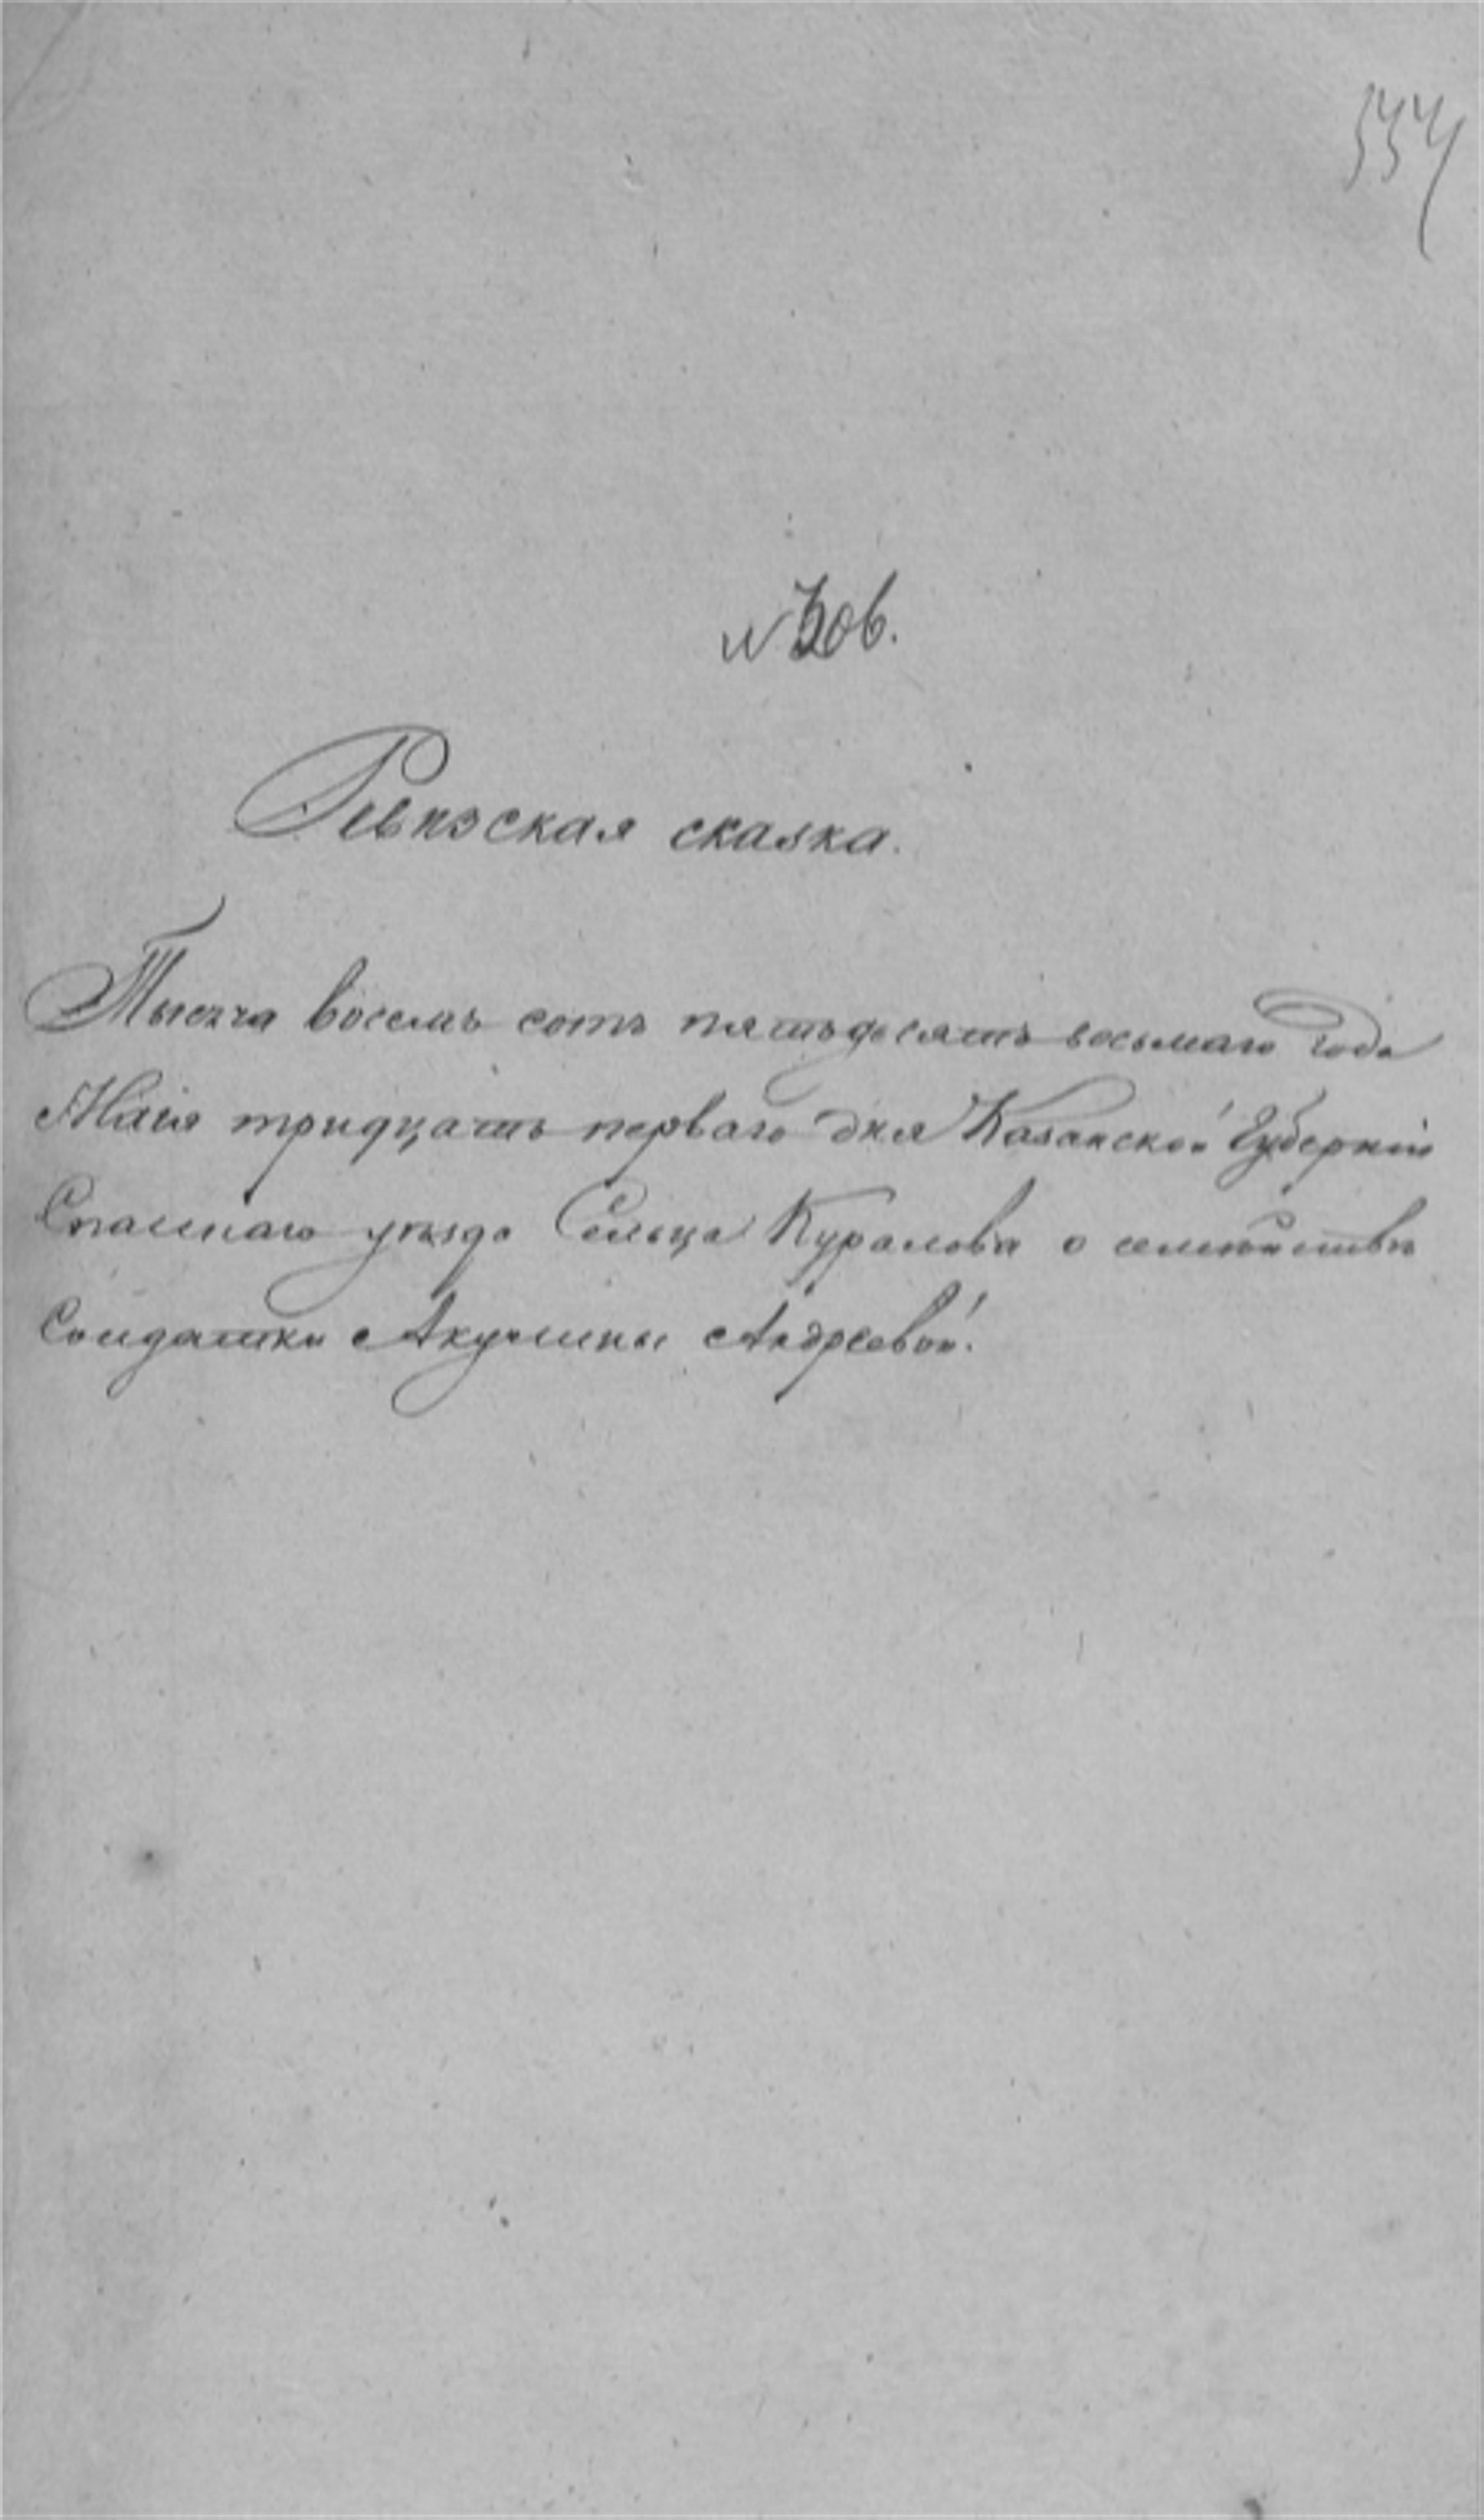 554
№ 306.
Ревизская сказка.
Тысяча восемь сотъ пятьдесятъ восьмаго года
Маія тридцать перваго дня Казанской Губерніи
Спаскаго уѣзда Сельца Куралова о семействѣ
Солдатки Акулины Андреевой.